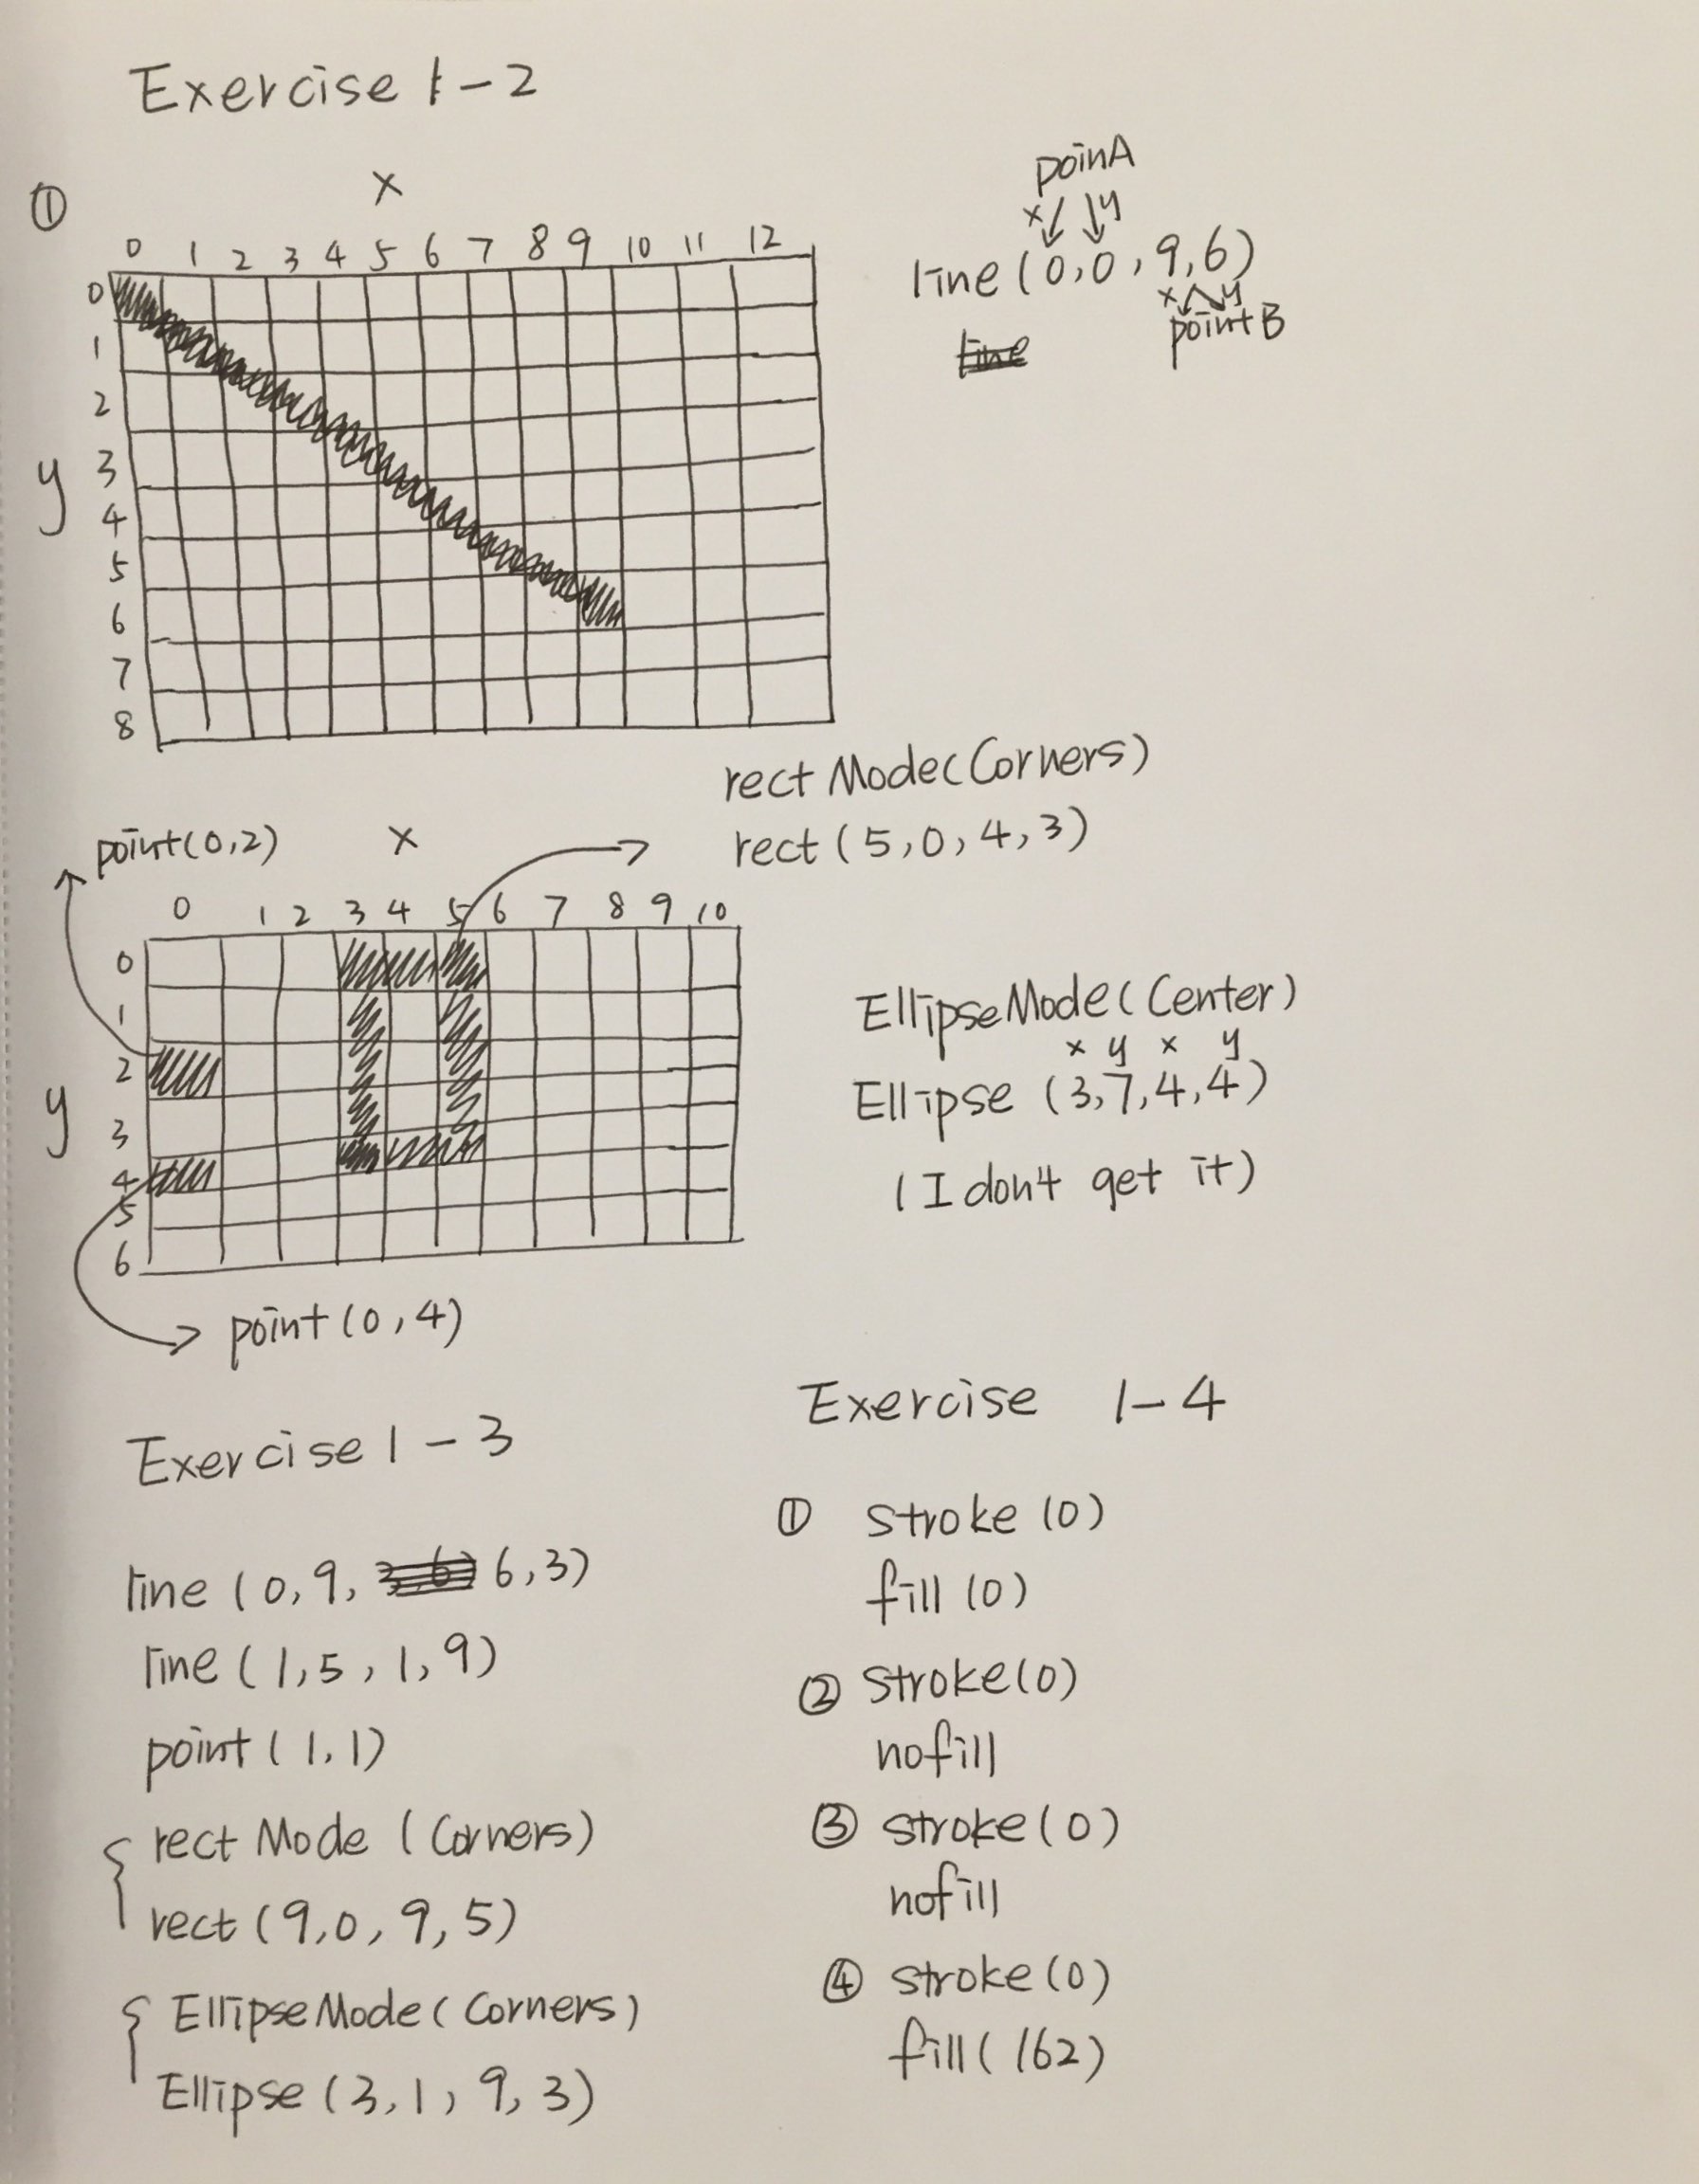 Exercise 1-2
①
x
0 1 2 3 4 5 6 7 8 9 10 11 12
0
1
2
3
4
5
6
7
8
y
poinA
x y
line (0,0,9,6)
x y
pointB
line
rect Mode(Corners)
rect (5,0,4,3)
point(0,2)
x
0 1 2 3 4 5 6 7 8 9 10
0
1
2
3
4
5
6
y
point (0,4)
EllipseMode(Center)
x y x y
Ellipse (3,7,4,4)
(I don't get it)
Exercise 1-3
line (0,9, 3,6) 6,3)
line (1,5,1,9)
point (1,1)
rect Mode (Corners)
rect (9,0,9,5)
EllipseMode(Corners)
Ellipse (3,1,9,3)
Exercise 1-4
① stroke (0)
fill (0)
② stroke(0)
nofill
③ stroke(0)
nofill
④ stroke(0)
fill(162)